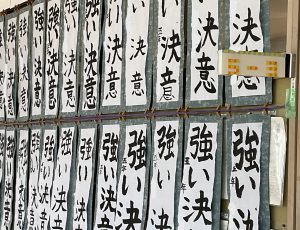 い決意
い決意
い決意
い決意
強い決意
強い決意
強い決意
強い決意
強い決意
強い決意
強い決
強い決
五年
強い決
強い決意
五年
強い決意
強い決意
強い決意
強い決意
強い決意